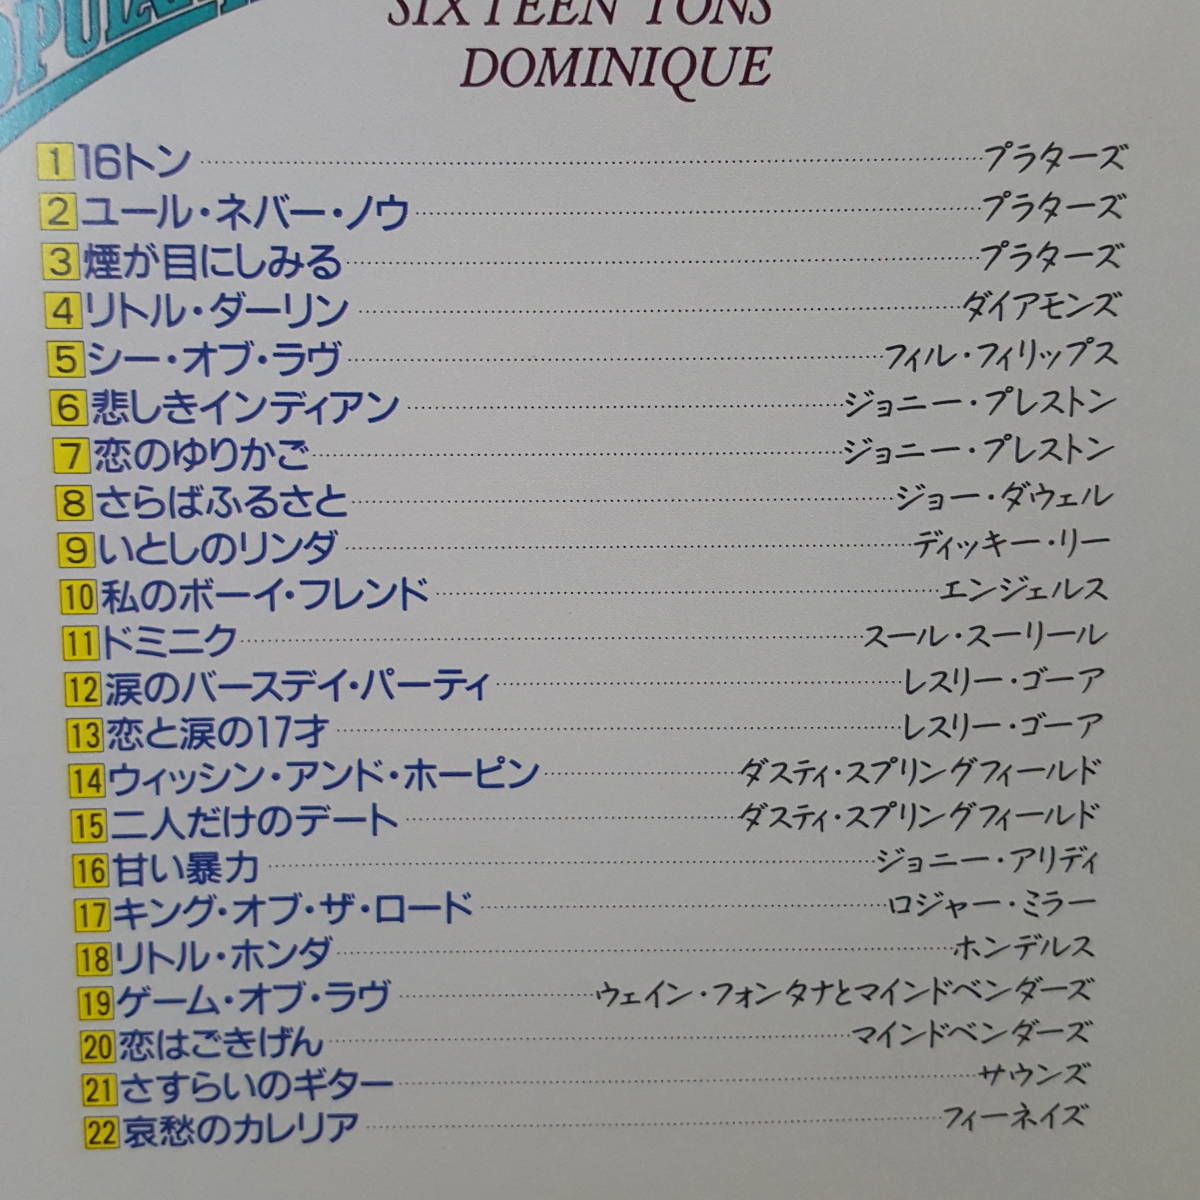 SIXTEEN TONS
DOMINIQUE
1 16トン プラターズ
2 ユール・ネバー・ノウ プラターズ
3 煙が目にしみる プラターズ
4 リトル・ダーリン ダイアモンズ
5 シー・オブ・ラヴ フィル・フィリップス
6 悲しきインディアン ジョニー・プレストン
7 恋のゆりかご ジョニー・プレストン
8 さらばふるさと ジョー・ダウェル
9 いとしのリンダ ディッキー・リー
10 私のボーイ・フレンド エンジェルス
11 ドミニク スール・スーリール
12 涙のバースデイ・パーティ レスリー・ゴーア
13 恋と涙の17才 レスリー・ゴーア
14 ウィッシン・アンド・ホーピン ダスティ・スプリングフィールド
15 二人だけのデート ダスティ・スプリングフィールド
16 甘い暴力 ジョニー・アリディ
17 キング・オブ・ザ・ロード ロジャー・ミラー
18 リトル・ホンダ ホンデルス
19 ゲーム・オブ・ラヴ ウェイン・フォンタナとマインドベンダーズ
20 恋はごきげん マインドベンダーズ
21 さすらいのギター サウンズ
22 哀愁のカレリア フィーネイズ